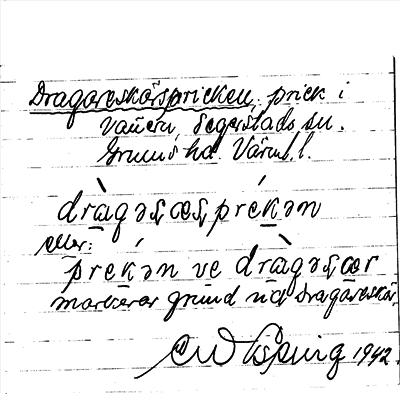 Dragareskärspricken, prick i
Vänern, Segerstads sn.
Grums hd. Värml.
dràgəʂæʂprékən
eller:
prékən ve dràgəʂær
markerar grund vid Dragareskär.
1942.